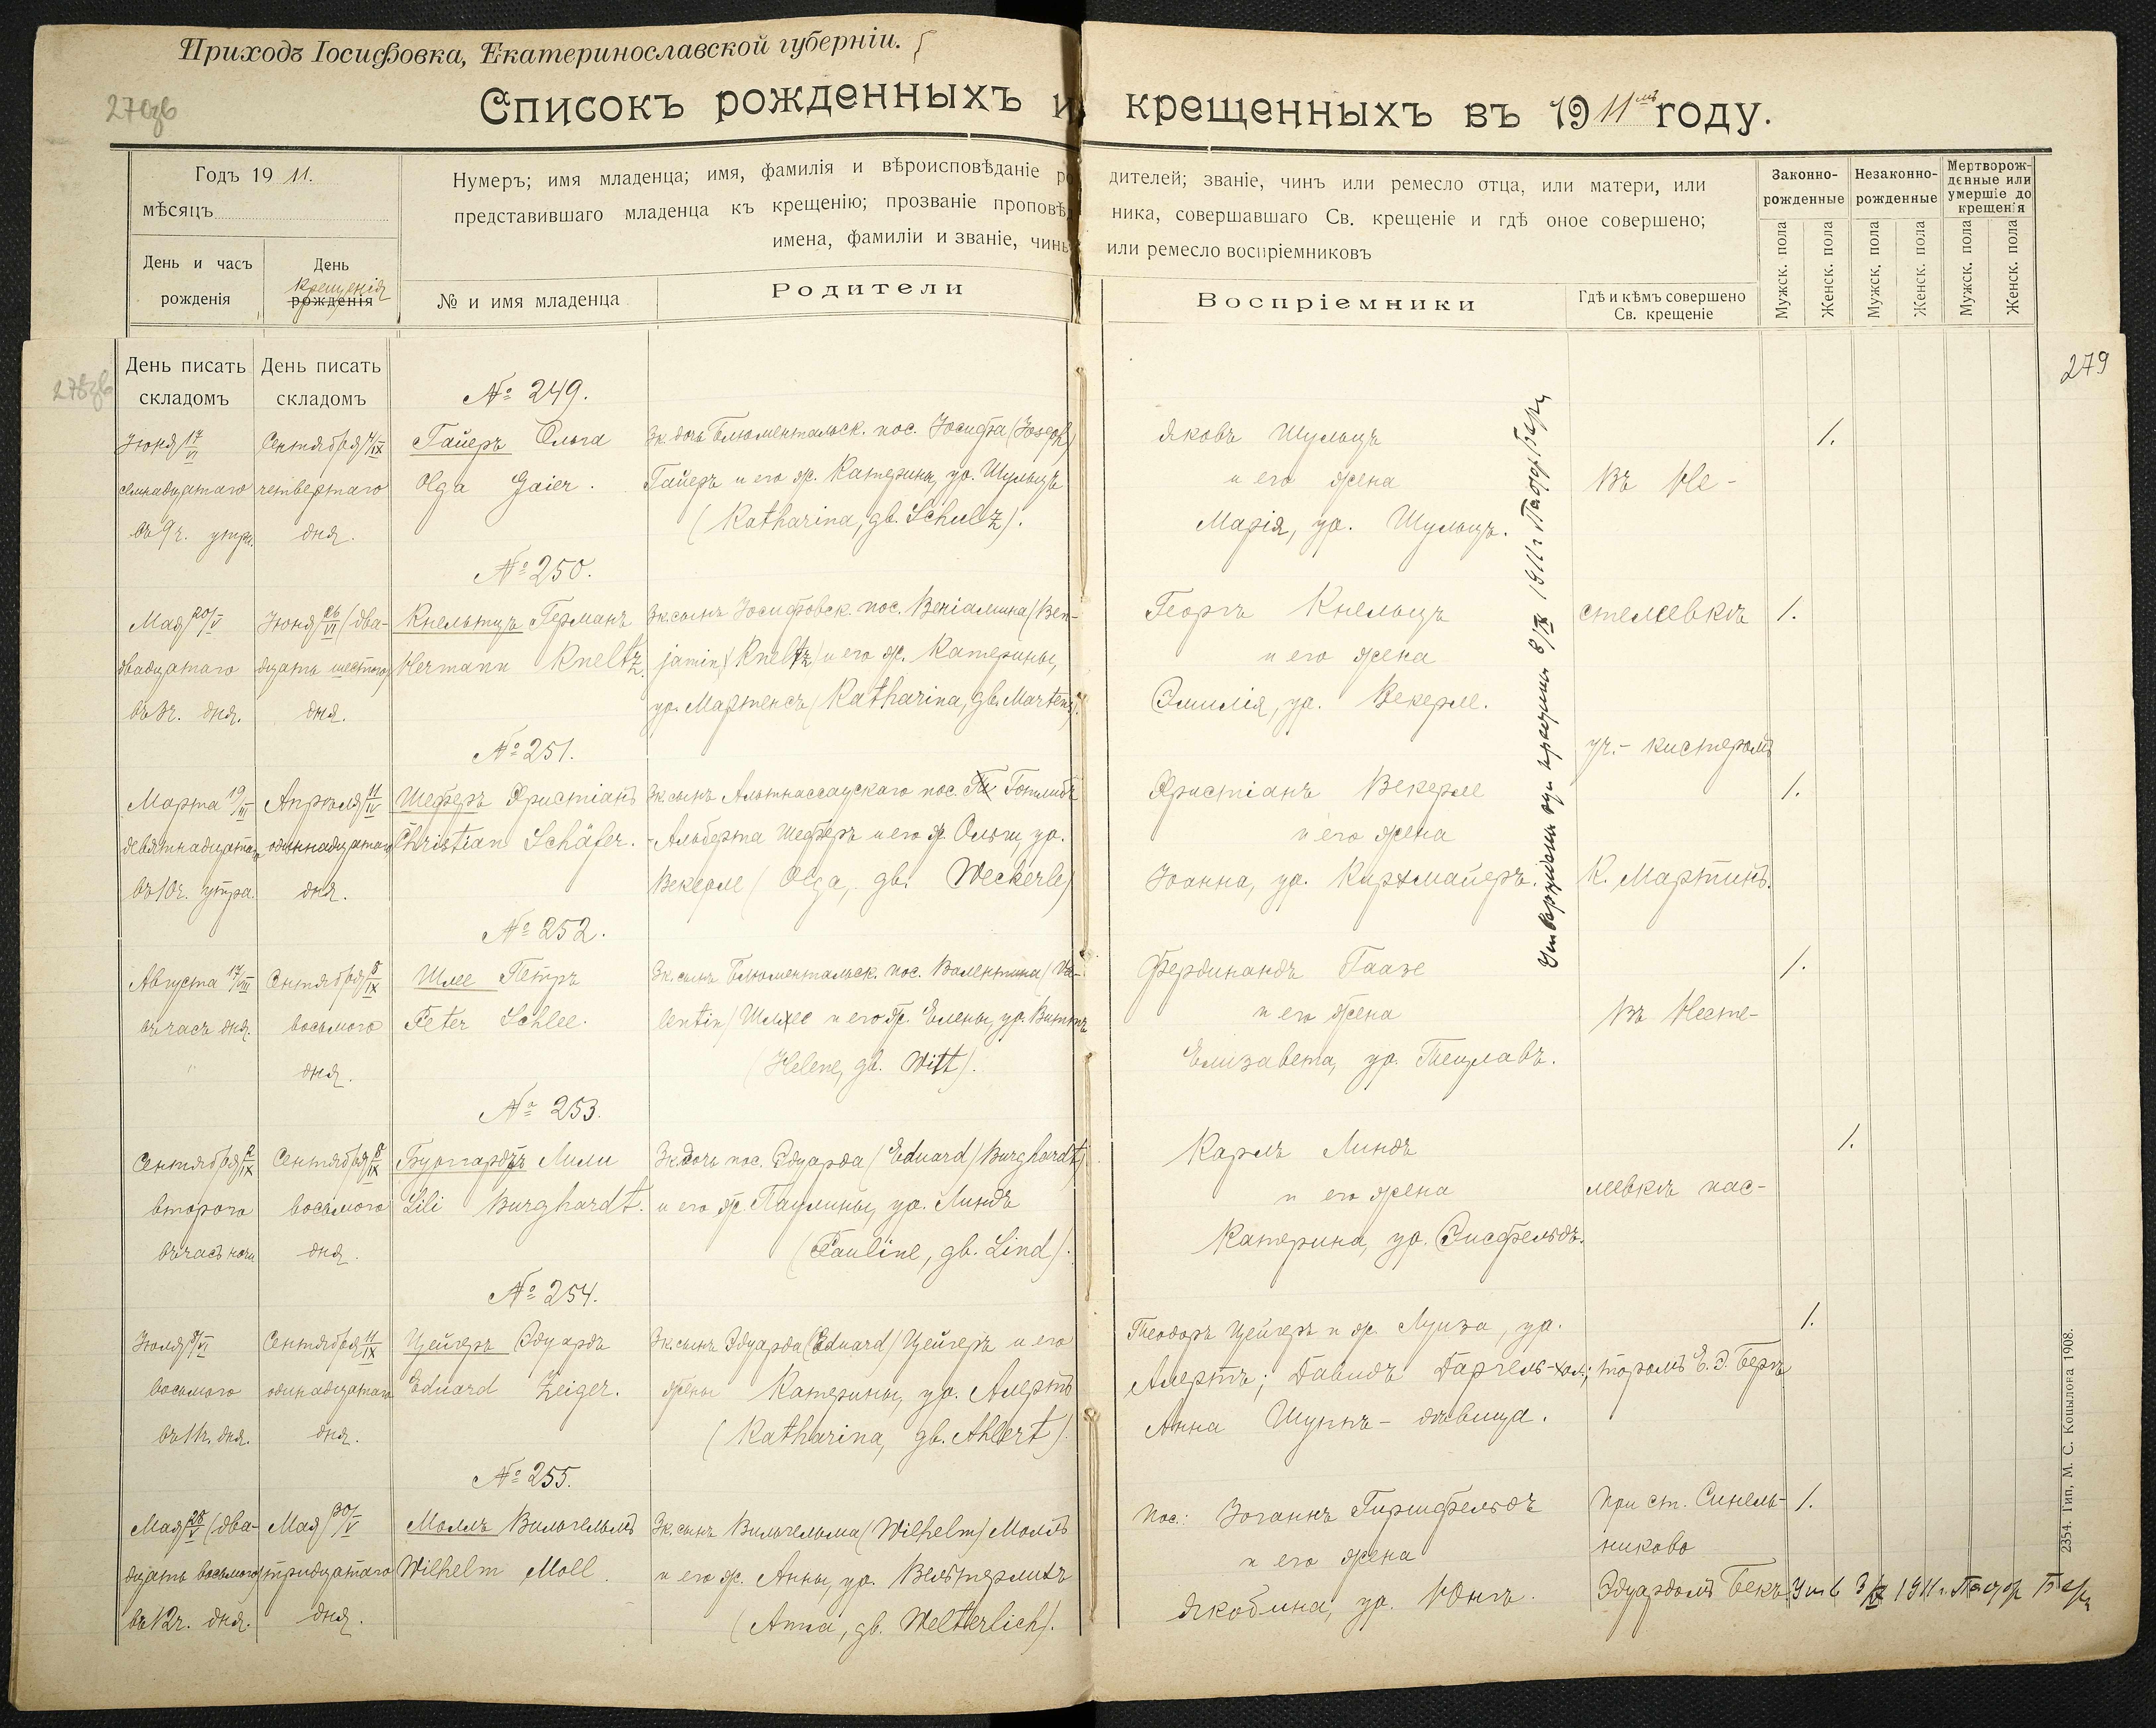 Приходъ Іосифовка, Екатеринославской губерніи.
Списокъ рожденныхъ и крещенныхъ въ 1911мъ году.
279
Годъ 19 11.
мѣсяцъ
День и часъ
рожденія
День
крещенія
рожденія
Нумеръ; имя младенца; имя, фамилія и вѣроисповѣданіе ро дителей; званіе, чинъ или ремесло отца, или матери, или
представившаго младенца къ крещенію; прозваніе проповѣд ника, совершавшаго Св. крещеніе и гдѣ оное совершено;
имена, фамиліи и званіе, чинъ или ремесло воспріемниковъ
№ и имя младенца
Родители
Воспріемники
Гдѣ и кѣмъ совершено
Св. крещеніе
Законно-
рожденные
Незаконно-
рожденные
Мертворож-
денные или
умершіе до
крещенія
Мужск. пола
Женск. пола
Мужск. пола
Женск. пола
Мужск. пола
Женск. пола
День писать
складомъ
День писать
складомъ
№ 249.
Іюня 17/VI
семнадцатаго
въ 9 ч. утра.
Сентября 4/IX
четвертаго
дня.
Гайеръ Ольга
Olga Gaier.
Зк. дочь Блюментальск. пос. Іосифа (Joseph)
Гайеръ и его ж. Катерины, ур. Шульцъ
(Katharina, gb. Schulz).
Яковъ Шульцъ
и его жена
Марія, ур. Шульцъ.
Въ Не-
1.
№ 250.
Мая 20/V
двадцатаго
въ 3 ч. дня.
Іюня 26/VI (два-
дцать шестого)
дня.
Кнельтцъ Германъ
Hermann Kneltz.
Зк. сынъ Іосифовск. пос. Веніамина (Ben-
jamin) Kneltz и его ж. Катерины,
ур. Мартенсъ (Katharina, gb. Martens).
Георгъ Кнельцъ
и его жена
Эмилія, ур. Векерле.
стелеевкѣ
1.
№ 251.
Марта 19/III
въ 10 ч. утра.
Апрѣля 11/IV
дня.
Шеферъ Христіанъ
Christian Schäfer.
Зк. сынъ Альтнассаускаго пос. Готлибъ
-Альберта Шеферъ и его ж. Ольги ур.
Векерле (Olga, gb. Weckerle)
Христіанъ Векерле
и его жена
Іоанна, ур. Кирхмайеръ.
уч.-кистеромъ
К. Мартинъ.
1.
№ 252.
Августа 17/VIII
въ часъ дня.
Сентября 8/IX
восьмого
дня.
Шлее Петръ
Peter Schlee.
Зк. сынъ Блюментальск. пос. Валентина (Va-
lentin) Шлее и его ж. Елены, ур. Виттъ
(Helene, gb. Witt).
Фердинандъ Гаазе
и его жена
Елизавета, ур.
Въ Несте-
1.
№ 253.
Сентября 2/IX
второго
въ часъ ночи
Сентября 8/IX
восьмого
дня.
Бургардтъ Лили
Lili Burghardt.
Зк. дочь пос. Эдуарда (Eduard) Burghardt
и его ж. Паулины, ур. Линдъ
(Pauline, gb. Lind).
Карлъ Линдъ
и его жена
Катерина, ур. Эисфельдъ.
леевкѣ пас-
1.
№ 254.
Іюля 8/VI
восьмого
въ 11 ч. дня.
Сентября 11/IX
одинадцатаго
дня.
Цейгеръ Эдуардъ
Eduard Zeiger.
Зк. сынъ Эдуарда (Eduard) Цейгеръ и его
жены Катерины, ур. Алертъ
(Katharina, gb. Ahlert).
Теодоръ Цейгеръ и ж. Луиза, ур.
Алертъ; Давидъ Даргель-хол.;
Анна Шуппъ - дѣвица.
торомъ Е. Э. Бергъ
1.
№ 255.
Мая 28/V (два-
дцать восьмого)
въ 12 ч. дня.
Мая 30/V
тридцатаго
дня.
Моллъ Вильгельмъ
Wilhelm Moll.
Зк. сынъ Вильгельма (Wilhelm) Моллъ
и его ж. Анны, ур. Вельтерлихъ
(Anna, gb. Welterlich).
Пос.: Іоганнъ Гиршфельдъ
и его жена
Якобина, ур. Юнгъ.
При ст. Синель-
никово
Эдуардомъ Бекъ. Утв 3/IX 1911 г. Пастор Берг
1.
2354. Тип. М. С. Копылова 1908.